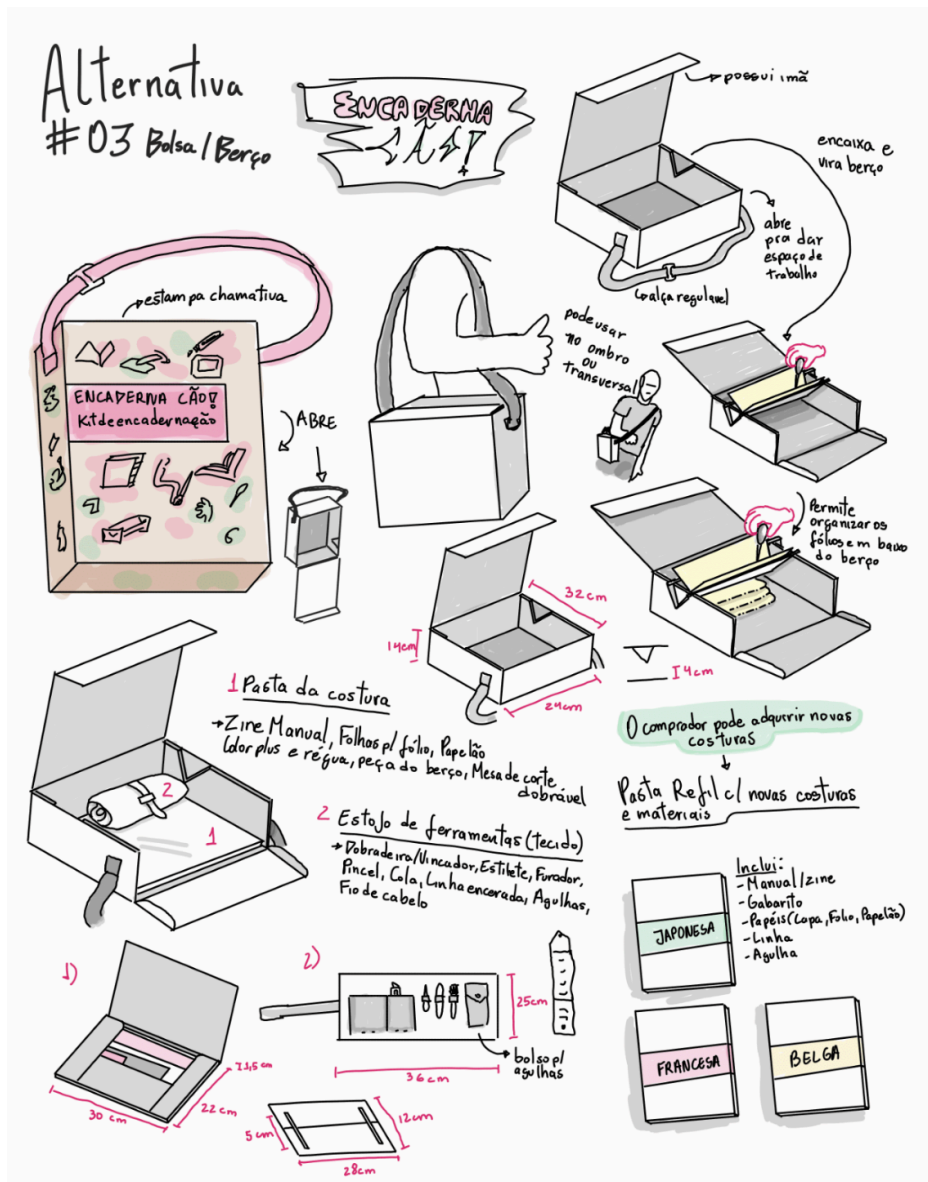 Alternativa
#03 Bolsa/Berço
ENCADERNA
ÇÃO!
possui imã
encaixa e
vira berço
abre
pra dar
espaço de
trabalho
alça regulavel
estampa chamativa
ENCADERNA ÇÃO!
Kit de encadernação
ABRE
pode usar
no ombro
ou
transversal
Permite
organizar os
fólios em baixo
do berço
32cm
14cm
24cm
4cm
1 Pasta da costura
Zine Manual, Folhas p/ fólio, Papelão
Colorplus e régua, peça do berço, Mesa de corte
dobrável
2 Estojo de ferramentas (tecido)
Dobradeira/Vincador, Estilete, Furador,
Pincel, Cola, Linha encerada, Agulhas,
Fio de cabelo
2
1
O comprador pode adquirir novas
costuras
Pasta Refil c/ novas costuras
e materiais
Inclui:
- Manual/zine
- Gabarito
- Papéis (Capa, Folio, Papelão)
- Linha
- Agulha
JAPONESA
FRANCESA
BELGA
1)
1,5cm
30 cm
22 cm
2)
25cm
bolso p/
agulhas
36cm
5cm
12cm
28cm